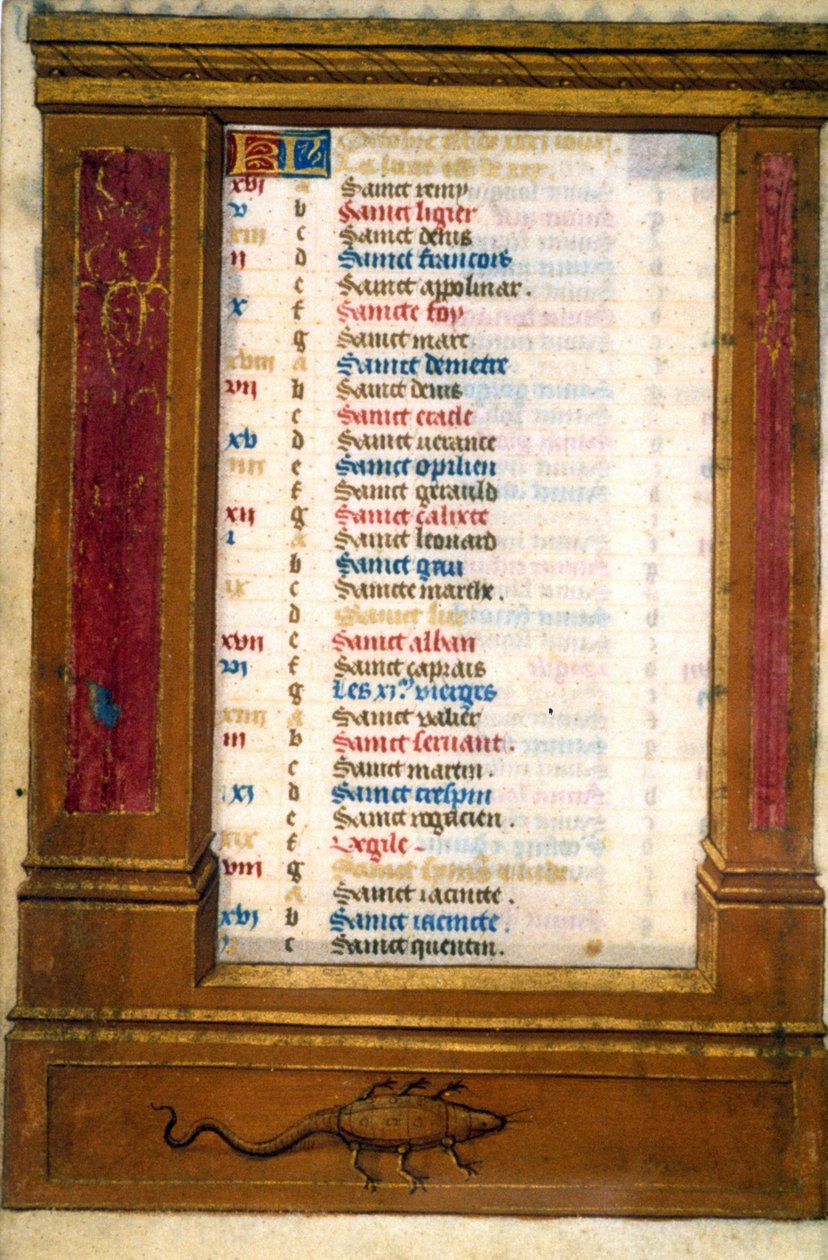 KL Octobre a xxxi iours.
La lune xxx.
xvi a Sainct remy
v b Sainct ligier
xiii c Sainct denis
ii d Sainct francois
e Sainct appolinar.
x f Saincte foy
g Sainct marc
xviii a Sainct demetre
vii b Sainct denis
c Sainct eracle
xv d Sainct uerance
iiii e Sainct opilien
f Sainct gerauld
xii g Sainct calixte
i a Sainct leonard
b Sainct grau
ix c Saincte marthe.
d Sainct luc
xvii e Sainct alban
vi f Sainct caprais
g Les xi.m vierges
xiiii a Sainct valier
iii b Sainct seruant.
c Sainct martin
xi d Sainct crespin
e Sainct rogacien.
xix f Vigile.
viii g Sainct symon
a Sainct iacincte.
xvi b Sainct iacincte.
c Sainct quentin.